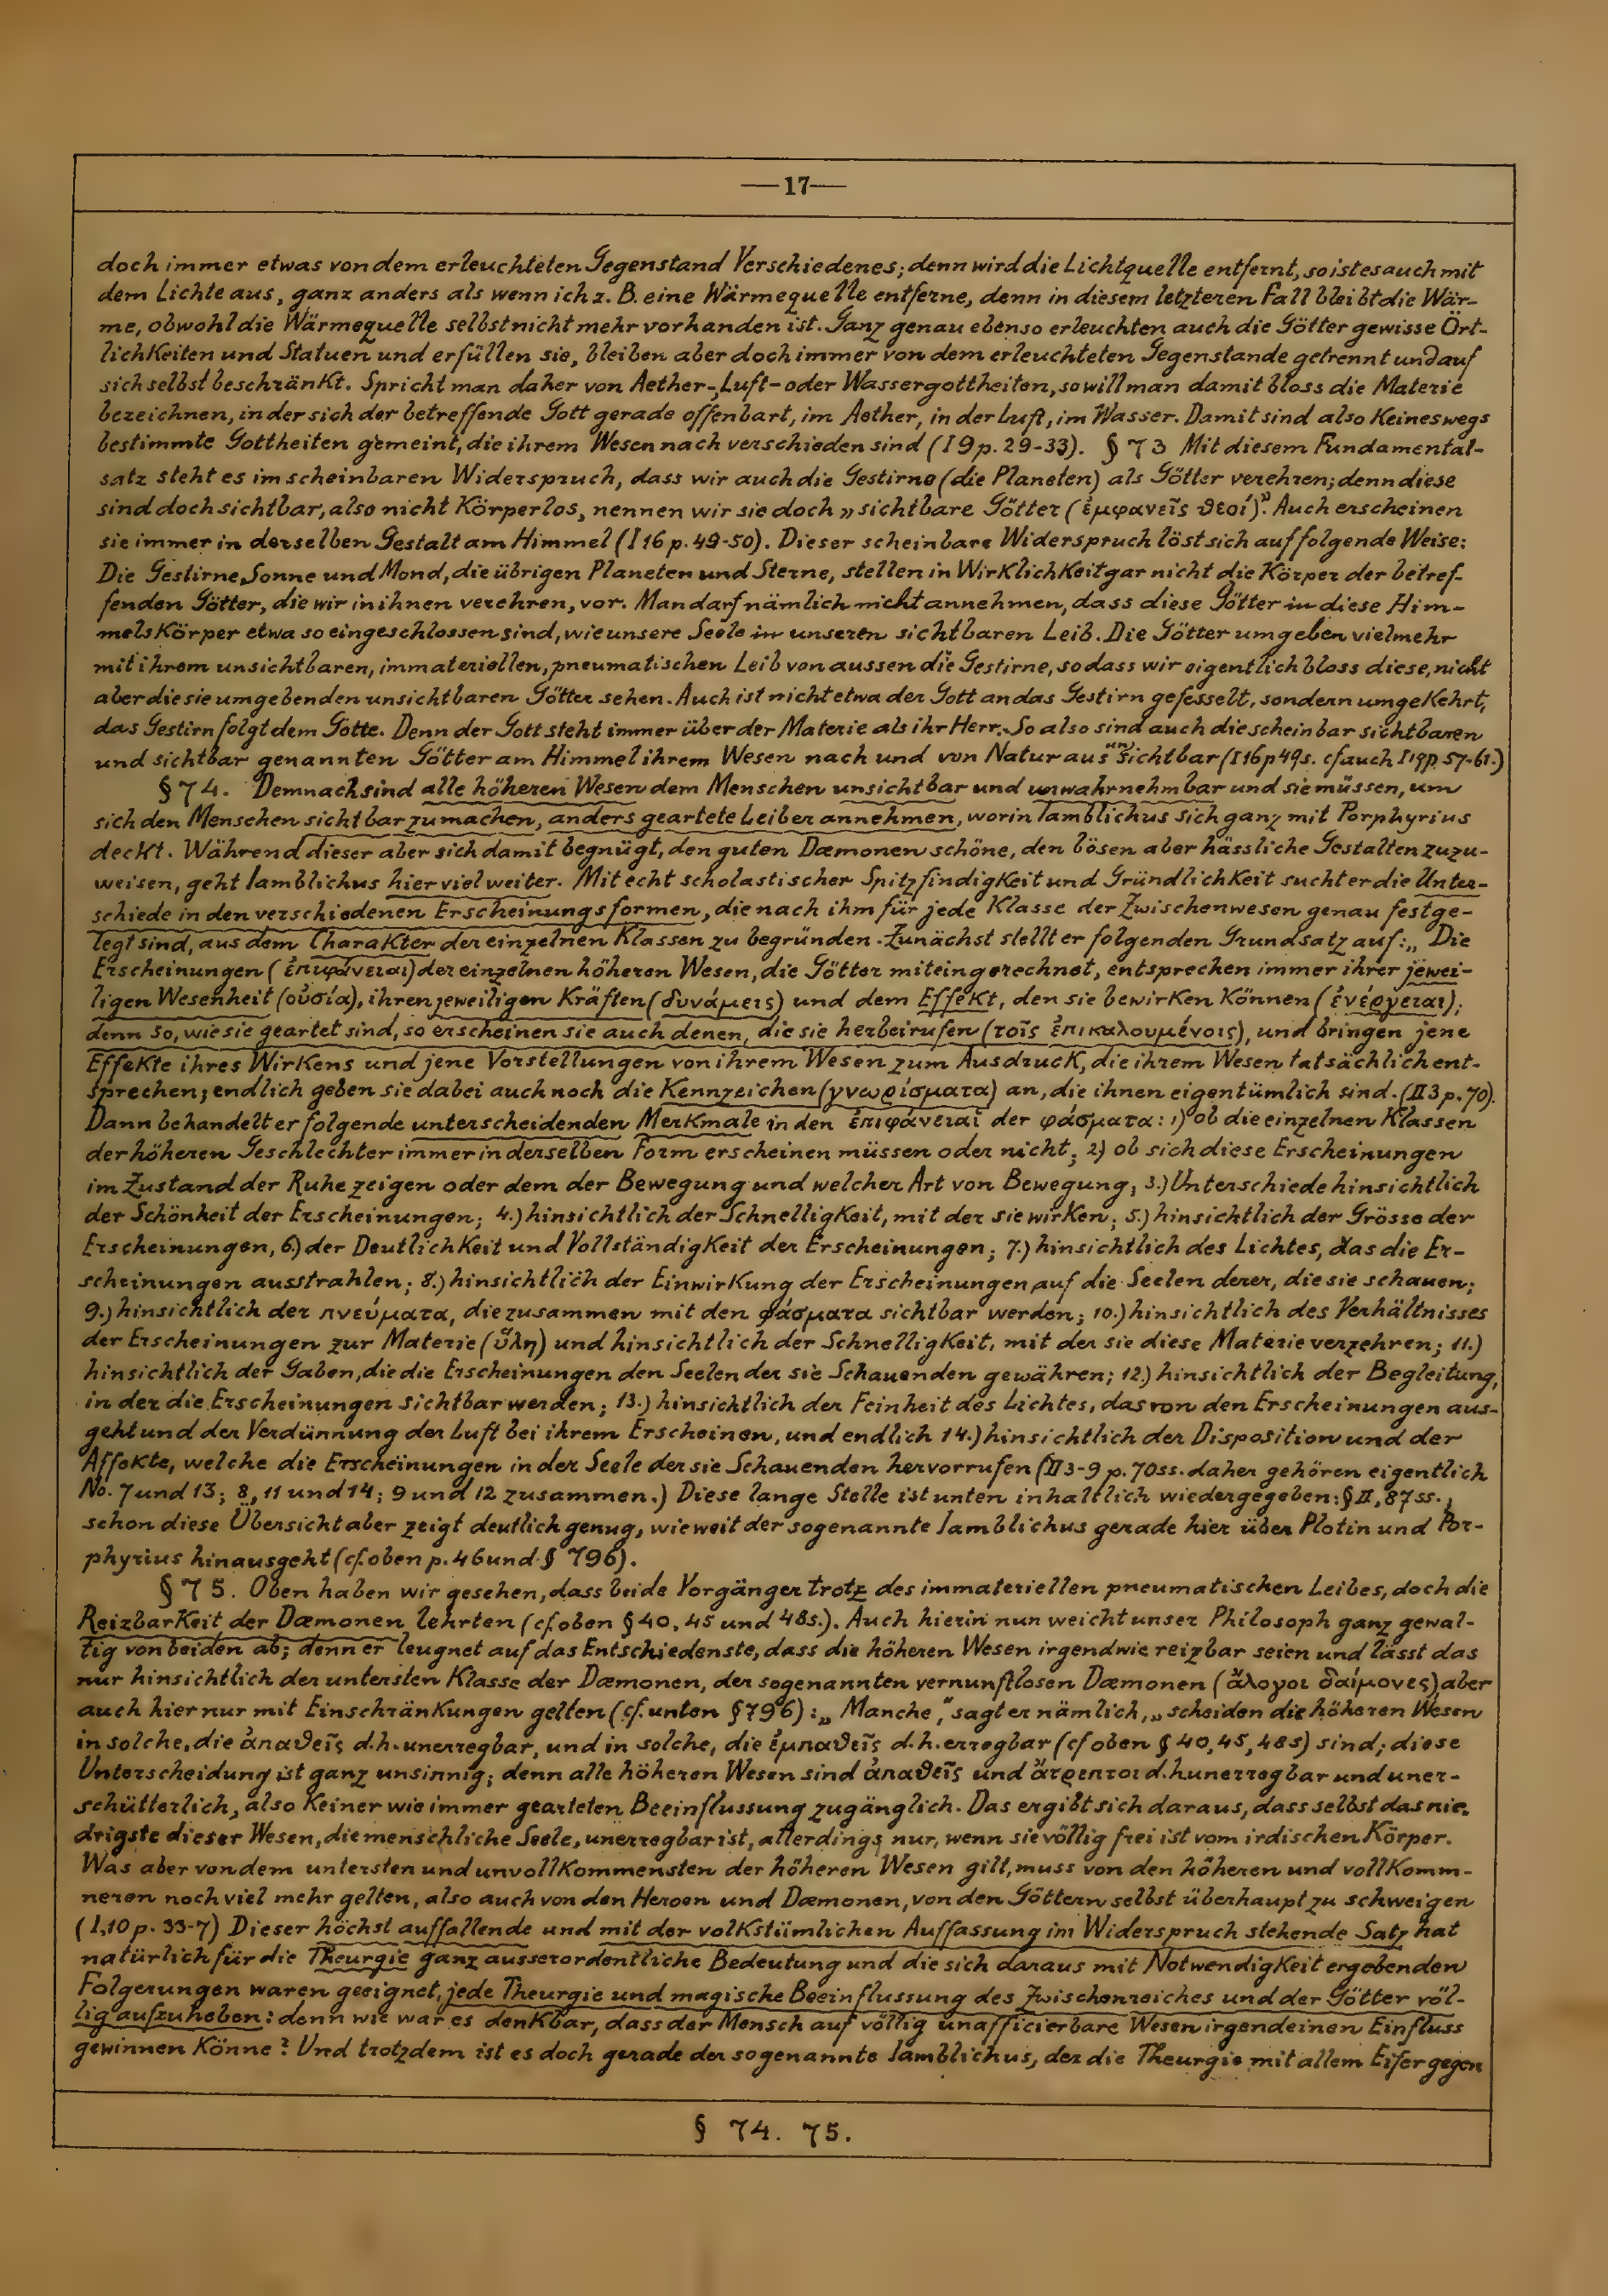 —17—
doch immer etwas von dem erleuchteten Gegenstand Verschiedenes; denn wird die Lichtquelle entfernt, so ist es auch mit
dem Lichte aus, ganz anders als wenn ich z. B. eine Wärmequelle entferne, denn in diesem letzteren Fall bleibt die Wär-
me, obwohl die Wärmequelle selbst nicht mehr vorhanden ist. Ganz genau ebenso erleuchten auch die Götter gewisse Ört-
lichkeiten und Statuen und erfüllen sie, bleiben aber doch immer von dem erleuchteten Gegenstande getrennt und auf
sich selbst beschränkt. Spricht man daher von Aether-, Luft- oder Wassergottheiten, so will man damit bloss die Materie
bezeichnen, in der sich der betreffende Gott gerade offenbart, im Aether, in der Luft, im Wasser. Damit sind also keineswegs
bestimmte Gottheiten gemeint, die ihrem Wesen nach verschieden sind (I 9 p. 29-33). § 73 Mit diesem Fundamental-
satz steht es im scheinbaren Widerspruch, dass wir auch die Gestirne (die Planeten) als Götter verehren; denn diese
sind doch sichtbar, also nicht körperlos, nennen wir sie doch „sichtbare Götter (ἐμφανεῖς θεοί)". Auch erscheinen
sie immer in derselben Gestalt am Himmel (I 16 p. 49-50). Dieser scheinbare Widerspruch löst sich auf folgende Weise:
Die Gestirne, Sonne und Mond, die übrigen Planeten und Sterne, stellen in Wirklichkeit gar nicht die Körper der betref-
fenden Götter, die wir in ihnen verehren, vor. Man darf nämlich nicht annehmen, dass diese Götter in diese Him-
melskörper etwa so eingeschlossen sind, wie unsere Seele in unseren sichtbaren Leib. Die Götter umgeben vielmehr
mit ihrem unsichtbaren, immateriellen, pneumatischen Leib von aussen die Gestirne, so dass wir eigentlich bloss diese, nicht
aber die sie umgebenden unsichtbaren Götter sehen. Auch ist nicht etwa der Gott an das Gestirn gefesselt, sondern umgekehrt,
das Gestirn folgt dem Gotte. Denn der Gott steht immer über der Materie als ihr Herr. So also sind auch die scheinbar sichtbaren
und sichtbar genannten Götter am Himmel ihrem Wesen nach und von Natur aus unsichtbar (I 16 p 49 s. cf auch I 19 p. 57-61.)
§ 74. Demnach sind alle höheren Wesen dem Menschen unsichtbar und unwahrnehmbar und sie müssen, um
sich den Menschen sichtbar zu machen, anders geartete Leiber annehmen, worin Iamblichus sich ganz mit Porphyrius
deckt. Während dieser aber sich damit begnügt, den guten Dæmonen schöne, den bösen aber hässliche Gestalten zuzu-
weisen, geht Iamblichus hier viel weiter. Mit echt scholastischer Spitzfindigkeit und Gründlichkeit sucht er die Unter-
schiede in den verschiedenen Erscheinungsformen, die nach ihm für jede Klasse der Zwischenwesen genau festge-
legt sind, aus dem Charakter der einzelnen Klassen zu begründen. Zunächst stellt er folgenden Grundsatz auf: „Die
Erscheinungen (ἐπιφάνειαι) der einzelnen höheren Wesen, die Götter miteingerechnet, entsprechen immer ihrer jewei-
ligen Wesenheit (οὐσία), ihren jeweiligen Kräften (δυνάμεις) und dem Effekt, den sie bewirken können (ἐνέργειαι);
denn so, wie sie geartet sind, so erscheinen sie auch denen, die sie herbeirufen (τοῖς ἐπικαλουμένοις), und bringen jene
Effekte ihres Wirkens und jene Vorstellungen von ihrem Wesen zum Ausdruck, die ihrem Wesen tatsächlich ent-
sprechen; endlich geben sie dabei auch noch die Kennzeichen (γνωρίσματα) an, die ihnen eigentümlich sind. (II 3 p. 70).
Dann behandelt er folgende unterscheidenden Merkmale in den ἐπιφάνειαι der φάσματα: 1) ob die einzelnen Klassen
der höheren Geschlechter immer in derselben Form erscheinen müssen oder nicht; 2) ob sich diese Erscheinungen
im Zustand der Ruhe zeigen oder dem der Bewegung und welcher Art von Bewegung; 3.) Unterschiede hinsichtlich
der Schönheit der Erscheinungen; 4.) hinsichtlich der Schnelligkeit, mit der sie wirken; 5.) hinsichtlich der Grösse der
Erscheinungen, 6.) der Deutlichkeit und Vollständigkeit der Erscheinungen; 7.) hinsichtlich des Lichtes, das die Er-
scheinungen ausstrahlen; 8.) hinsichtlich der Einwirkung der Erscheinungen auf die Seelen derer, die sie schauen;
9.) hinsichtlich der πνεύματα, die zusammen mit den φάσματα sichtbar werden; 10.) hinsichtlich des Verhältnisses
der Erscheinungen zur Materie (ὕλη) und hinsichtlich der Schnelligkeit, mit der sie diese Materie verzehren; 11.)
hinsichtlich der Gaben, die die Erscheinungen den Seelen der sie Schauenden gewähren; 12.) hinsichtlich der Begleitung,
in der die Erscheinungen sichtbar werden; 13.) hinsichtlich der Feinheit des Lichtes, das von den Erscheinungen aus-
geht und der Verdünnung der Luft bei ihrem Erscheinen, und endlich 14.) hinsichtlich der Disposition und der
Affekte, welche die Erscheinungen in der Seele der sie Schauenden hervorrufen (II 3-9 p. 70ss. daher gehören eigentlich
No. 7 und 13; 8, 11 und 14; 9 und 12 zusammen.) Diese lange Stelle ist unten inhaltlich wiedergegeben: § II, 87 ss.,
schon diese Übersicht aber zeigt deutlich genug, wie weit der sogenannte Iamblichus gerade hier über Plotin und Por-
phyrius hinausgeht (cf. oben p. 46 und § 796).
§ 75. Oben haben wir gesehen, dass beide Vorgänger trotz des immateriellen pneumatischen Leibes, doch die
Reizbarkeit der Dæmonen lehrten (cf. oben § 40, 45 und 48s.). Auch hierin nun weicht unser Philosoph ganz gewal-
tig von beiden ab; denn er leugnet auf das Entschiedenste, dass die höheren Wesen irgendwie reizbar seien und lässt das
nur hinsichtlich der untersten Klasse der Dæmonen, der sogenannten vernunftlosen Dæmonen (ἄλογοι δαίμονες) aber
auch hier nur mit Einschränkungen gelten (cf. unten § 796): „Manche", sagt er nämlich, „scheiden die höheren Wesen
in solche, die ἀπαθεῖς d.h. unerregbar, und in solche, die ἐμπαθεῖς d.h. erregbar (cf oben § 40, 45, 48s) sind; diese
Unterscheidung ist ganz unsinnig; denn alle höheren Wesen sind ἀπαθεῖς und ἄτρεπτοι d.h unerregbar und uner-
schütterlich, also keiner wie immer gearteten Beeinflussung zugänglich. Das ergibt sich daraus, dass selbst das nie-
drigste dieser Wesen, die menschliche Seele, unerregbar ist, allerdings nur, wenn sie völlig frei ist vom irdischen Körper.
Was aber von dem untersten und unvollkommensten der höheren Wesen gilt, muss von den höheren und vollkomm-
neren noch viel mehr gelten, also auch von den Heroen und Dæmonen, von den Göttern selbst überhaupt zu schweigen
(I,10 p. 33-7) Dieser höchst auffallende und mit der volkstümlichen Auffassung im Widerspruch stehende Satz hat
natürlich für die Theurgie ganz ausserordentliche Bedeutung und die sich daraus mit Notwendigkeit ergebenden
Folgerungen waren geeignet, jede Theurgie und magische Beeinflussung des Zwischenreiches und der Götter völ-
lig aufzuheben: denn wie war es denkbar, dass der Mensch auf völlig unafficierbare Wesen irgendeinen Einfluss
gewinnen könne? Und trotzdem ist es doch gerade der sogenannte Iamblichus, der die Theurgie mit allem Eifer gegen
§ 74. 75.